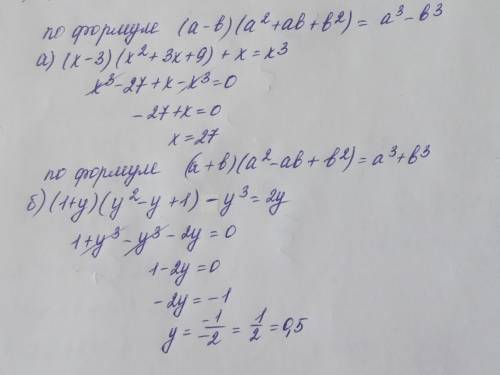 по формуле (a-b)(a²+ab+b²)= a³-b³
а) (x-3)(x²+3x+9)+x=x³
x³-27+x-x³=0
-27+x=0
x=27
по формуле (a+b)(a²-ab+b²)=a³+b³
б) (1+y)(y²-y+1)-y³=2y
1+y³-y³-2y=0
1-2y=0
-2y=-1
y=-1/-2=1/2=0,5